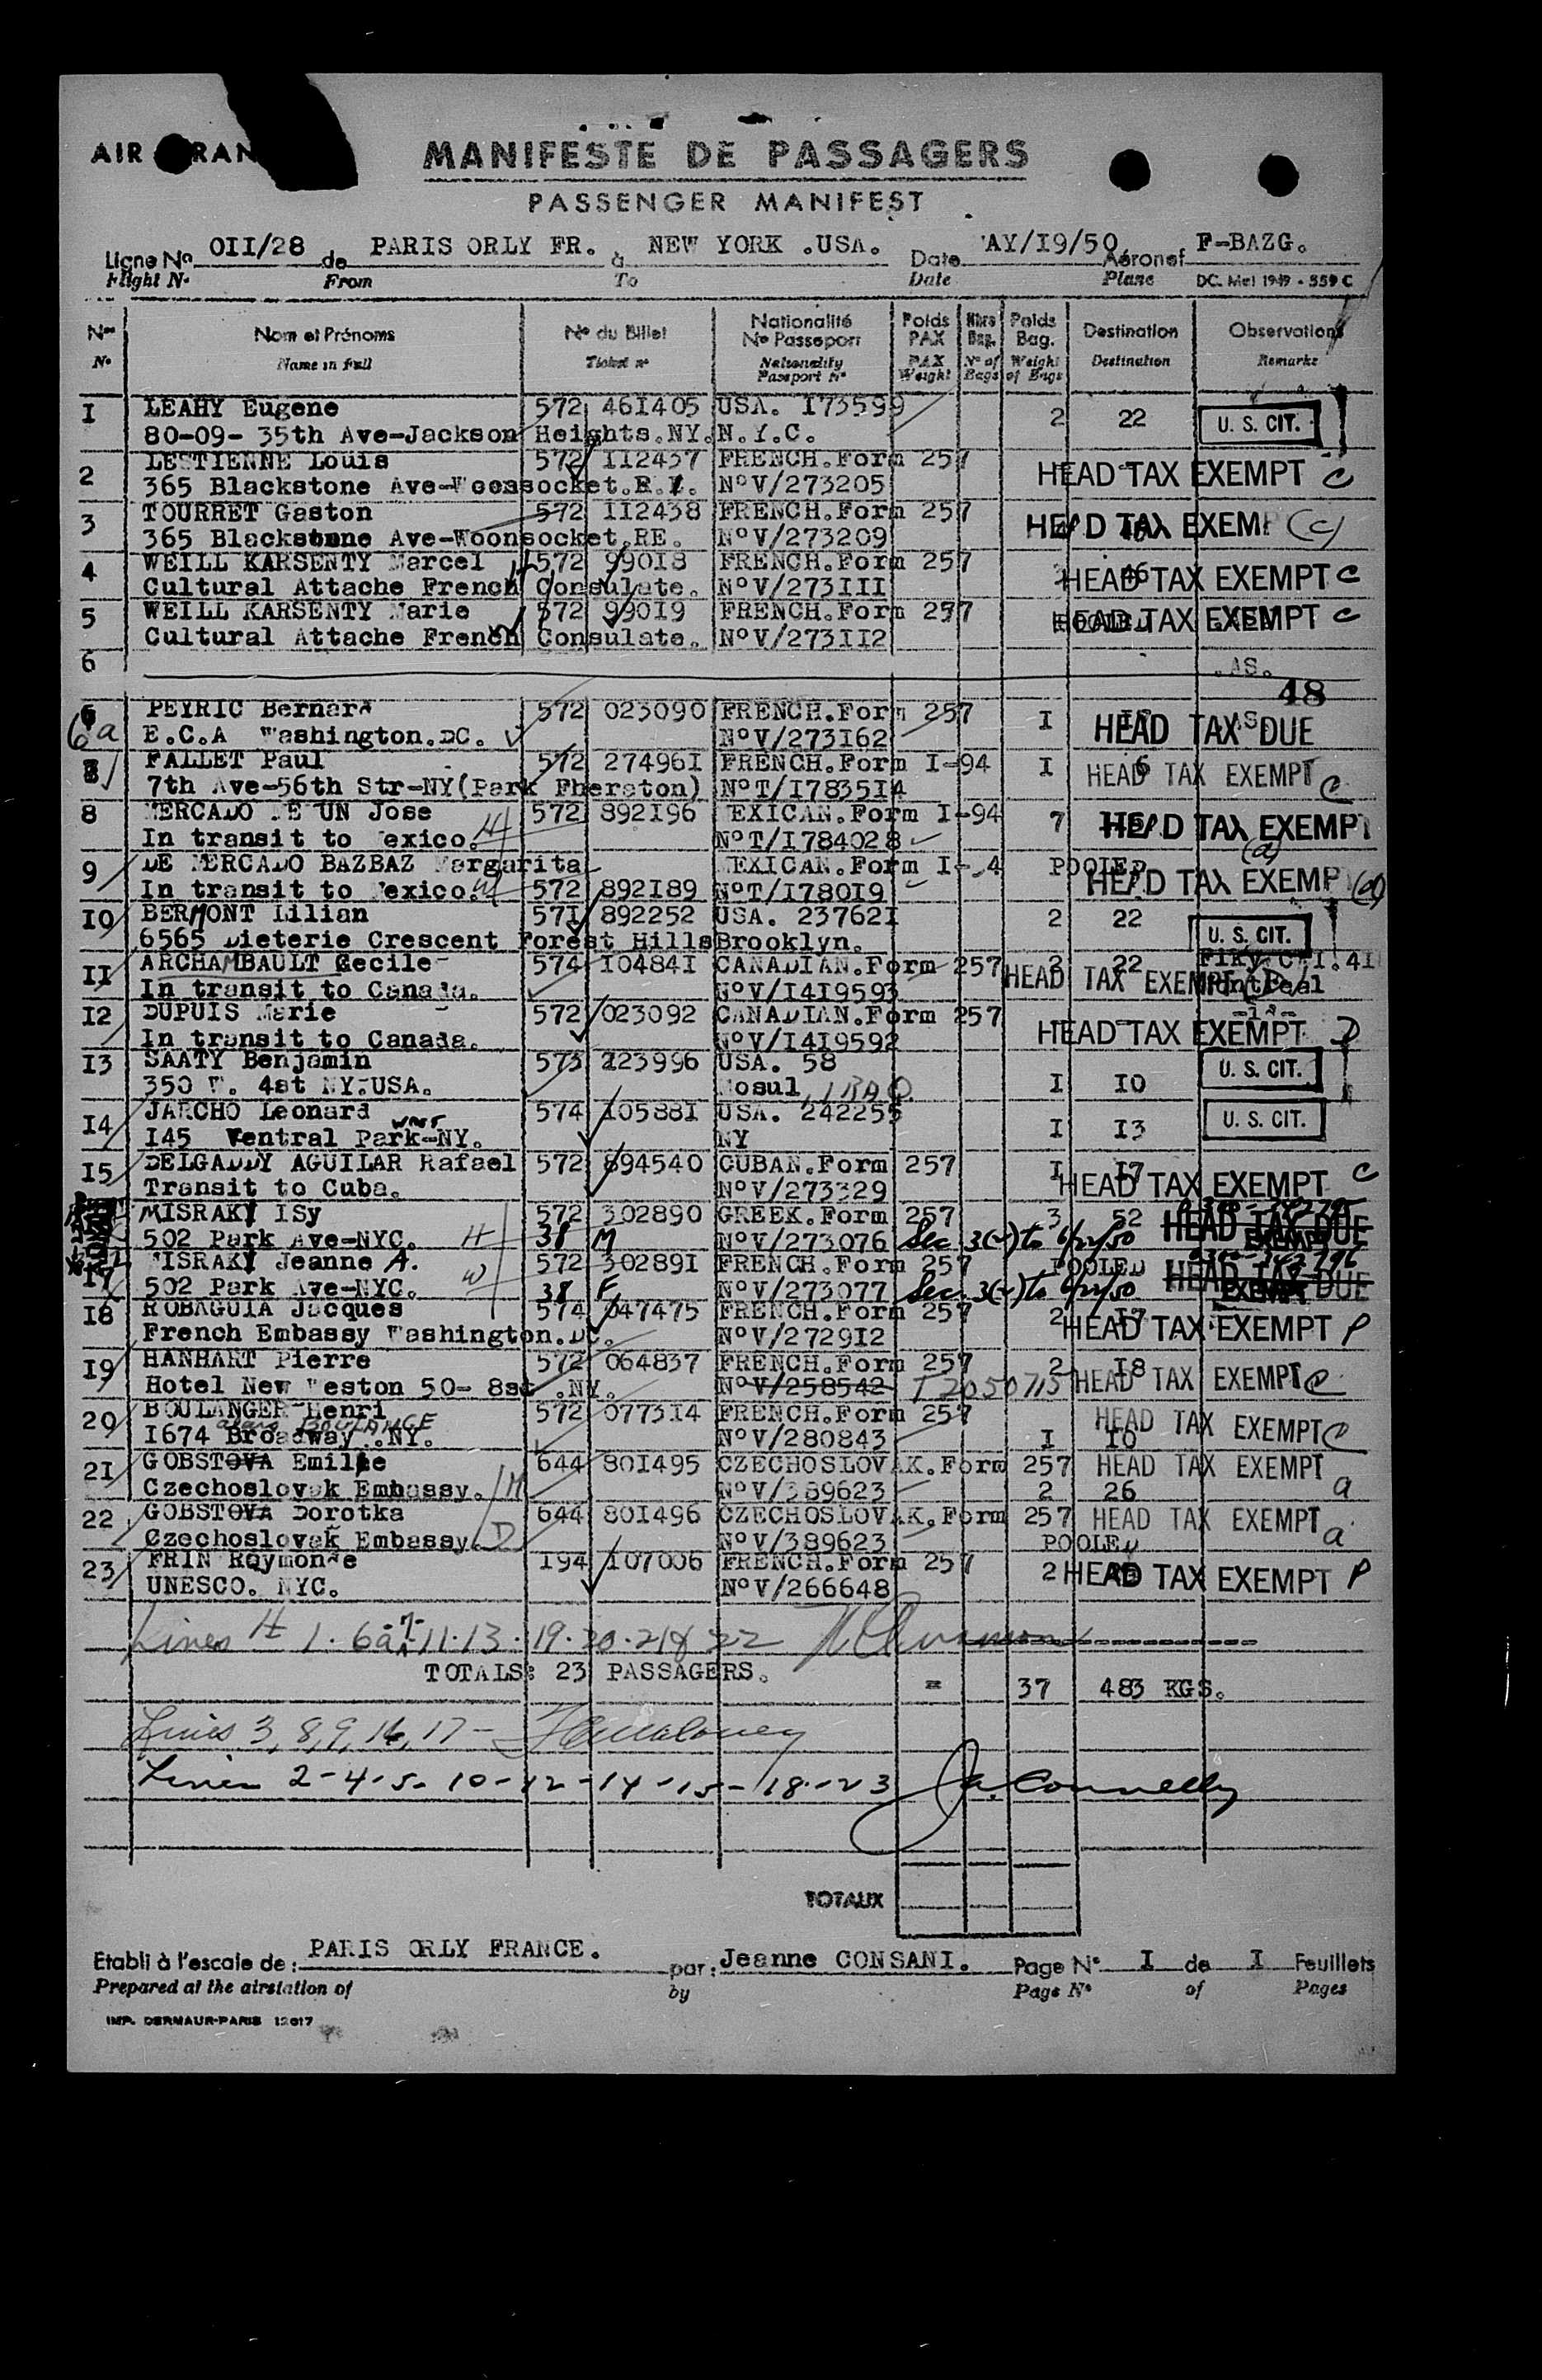 AIR RAN
MANIFESTE DE PASSAGERS
PASSENGER MANIFEST
Ligne No OII/28 de PARIS ORLY FR. à NEW YORK .USA. Date AY/I9/50 Aéronef F-BAZG.
Flight No From To Date Plane DC. Mel 1949 - 559 C
Nos Nom et Prénoms No du Billet Nationalité No Passeport Poids PAX Nbre Bag. Poids Bag. Destination Observations
No Name in full Ticket no Nationality Passport No PAX Weight No of Bags Weight of Bags Destination Remarks
I LEAHY Eugene 572 46I405 USA. I73599 2 22 U. S. CIT.
80-09- 35th Ave-Jackson Heights.NY.N.Y.C.
2 LESTIENNE Louis 572 II2437 FRENCH.Form 257
365 Blackstone Ave-Woonsocket.R.I. NoV/273205 HEAD TAX EXEMPT C
3 TOURRET Gaston 572 II2438 FRENCH.Form 257
365 Blackstone Ave-Woonsocket.RE. NoV/273209 HEAD TAX EXEMP (C)
4 WEILL KARSENTY Marcel H 572 990I8 FRENCH.Form 257
Cultural Attache French Consulate. NoV/273III 46 HEAD TAX EXEMPT C
5 WEILL KARSENTY Marie W 572 990I9 FRENCH.Form 257
Cultural Attache French Consulate. NoV/273II2 HEAD TAX EXEMPT C
6 .AS.
48
6a PEYRIC Bernard 572 023090 FRENCH.Form 257 I HEAD TAX DUE
E.C.A Washington.DC. NoV/273I62
7 FALLET Paul 572 27496I FRENCH.Form I-94 I 6 HEAD TAX EXEMPT C
7th Ave-56th Str-NY(Park Fheraton) NoT/I7835I4
8 MERCADO DE UN Jose 572 892I96 MEXICAN.Form I-94 7 HEAD TAX EXEMPT
In transit to Mexico. H NoT/I784028 (a)
9 DE MERCADO BAZBAZ Margarita MEXICAN.Form I-.4 POOLED
In transit to Mexico. W 572 892I89 NoT/I780I9 HEAD TAX EXEMP (a)
I0 BERMONT Lilian 57I 892252 USA. 23762I 2 22 U. S. CIT.
6565 Dieterie Crescent Forest HillsBrooklyn.
II ARCHAMBAULT Cecile 574 I0484I CANADIAN.Form 257 2 22
In transit to Canada. NoV/I4I9593 HEAD TAX EXEMPT
I2 DUPUIS Marie 572 023092 CANADIAN.Form 257
In transit to Canada. NoV/I4I9592 HEAD TAX EXEMPT D
I3 SAATY Benjamin 573 223996 USA. 58 U. S. CIT.
350 W. 4st NY.USA. Mosul, IRAQ I I0
I4 JARCHO Leonard 574 I0588I USA. 242255 U. S. CIT.
I45 Ventral Park West-NY. NY I I3
I5 DELGADDY AGUILAR Rafael 572 894540 CUBAN.Form 257 I I7
Transit to Cuba. NoV/273329 HEAD TAX EXEMPT C
MISRAKY ISy 572 302890 GREEK.Form 257 3 52 HEAD TAX DUE
502 Park Ave-NYC. H 38 M NoV/273076 Sec 3(2) to 6/22/50 EXEMPT
I7 MISRAKY Jeanne A. 572 302891 FRENCH.Form 257 POOLED HEAD TAX DUE
502 Park Ave-NYC. W 38 F NoV/273077 Sec 3(2) to 6/22/50 EXEMPT
I8 ROBAGUIA Jacques 574 047475 FRENCH.Form 257 2 I7
French Embassy Washington.DC. NoV/2729I2 HEAD TAX EXEMPT P
I9 HANHART Pierre 572 064837 FRENCH.Form 257 2 I8
Hotel New Weston 50- 8st .NY. NoV/258542 T 2050715 HEAD TAX EXEMPT C
20 BOULANGER Henri 572 0773I4 FRENCH.Form 257
alias BOULANGE
I674 Broadway .NY. NoV/280843 I I0 HEAD TAX EXEMPT C
2I GOBSTOVA Emilie 644 80I495 CZECHOSLOVAK.Form 257 HEAD TAX EXEMPT
Czechoslovak Embassy. M NoV/389623 2 26 a
22 GOBSTOVA Dorotka 644 80I496 CZECHOSLOVAK.Form 257 HEAD TAX EXEMPT a
Czechoslovak Embassy. D NoV/389623 POOLED
23 FRIN RQymonde I94 I07006 FRENCH.Form 257
UNESCO. NYC. NoV/266648 2 HEAD TAX EXEMPT P
Lines 1. 6a-7-11.13.19.20.21&22
TOTALS: 23 PASSAGERS. = 37 483 KGS.
Lines 3, 8, 9, 16, 17- Maloney
Lines 2-4-5-10-12-14-15-18-23 J. Connelly
TOTAUX
Etabli à l'escale de : PARIS ORLY FRANCE. par : Jeanne CONSANI. Page No I de I Feuillets
Prepared at the airstation of by Page No of Pages
IMP. DERMAUR-PARIS 12017